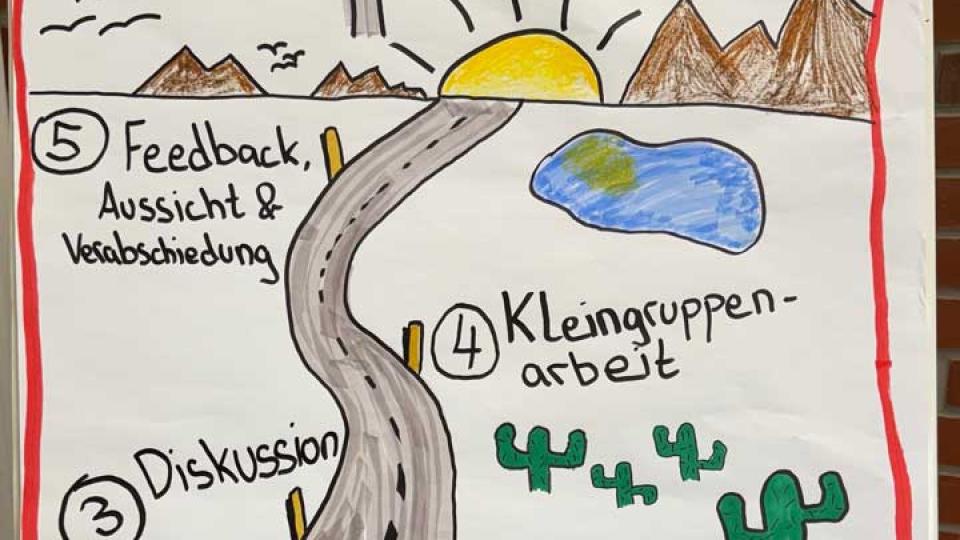 5 Feedback,
Aussicht &
Verabschiedung
4 Kleingruppen-
arbeit
3 Diskussion